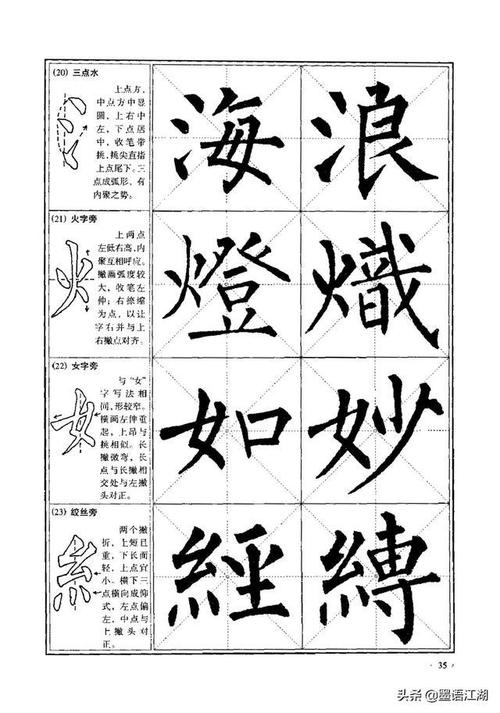 (20) 三点水
上点方,
中点方中显
圆，上右中
左，下点居
中，收笔带
挑，挑尖直指
上点尾下。三
点成弧形，有
内聚之势。
海浪
(21) 火字旁
上两点
左低右高，内
聚互相呼应。
撇画弧度较
大，收笔左
伸；右捺缩
为点，以让
字右并与上
右撇点对齐。
燈熾
(22) 女字旁
与“女”
字写法相
同，形较窄。
横画左伸重
起，上昂与
挑相似。长
撇微弯，长
点与长撇相
交处与左撇
头对正。
如妙
(23) 绞丝旁
两个撇
折，上短且
重，下长而
轻，上点宜
小。横下三
点横向成仰
式，左点偏
左，中点与
上撇头对
正。
經縛
· 35 ·
头条@墨语江湖